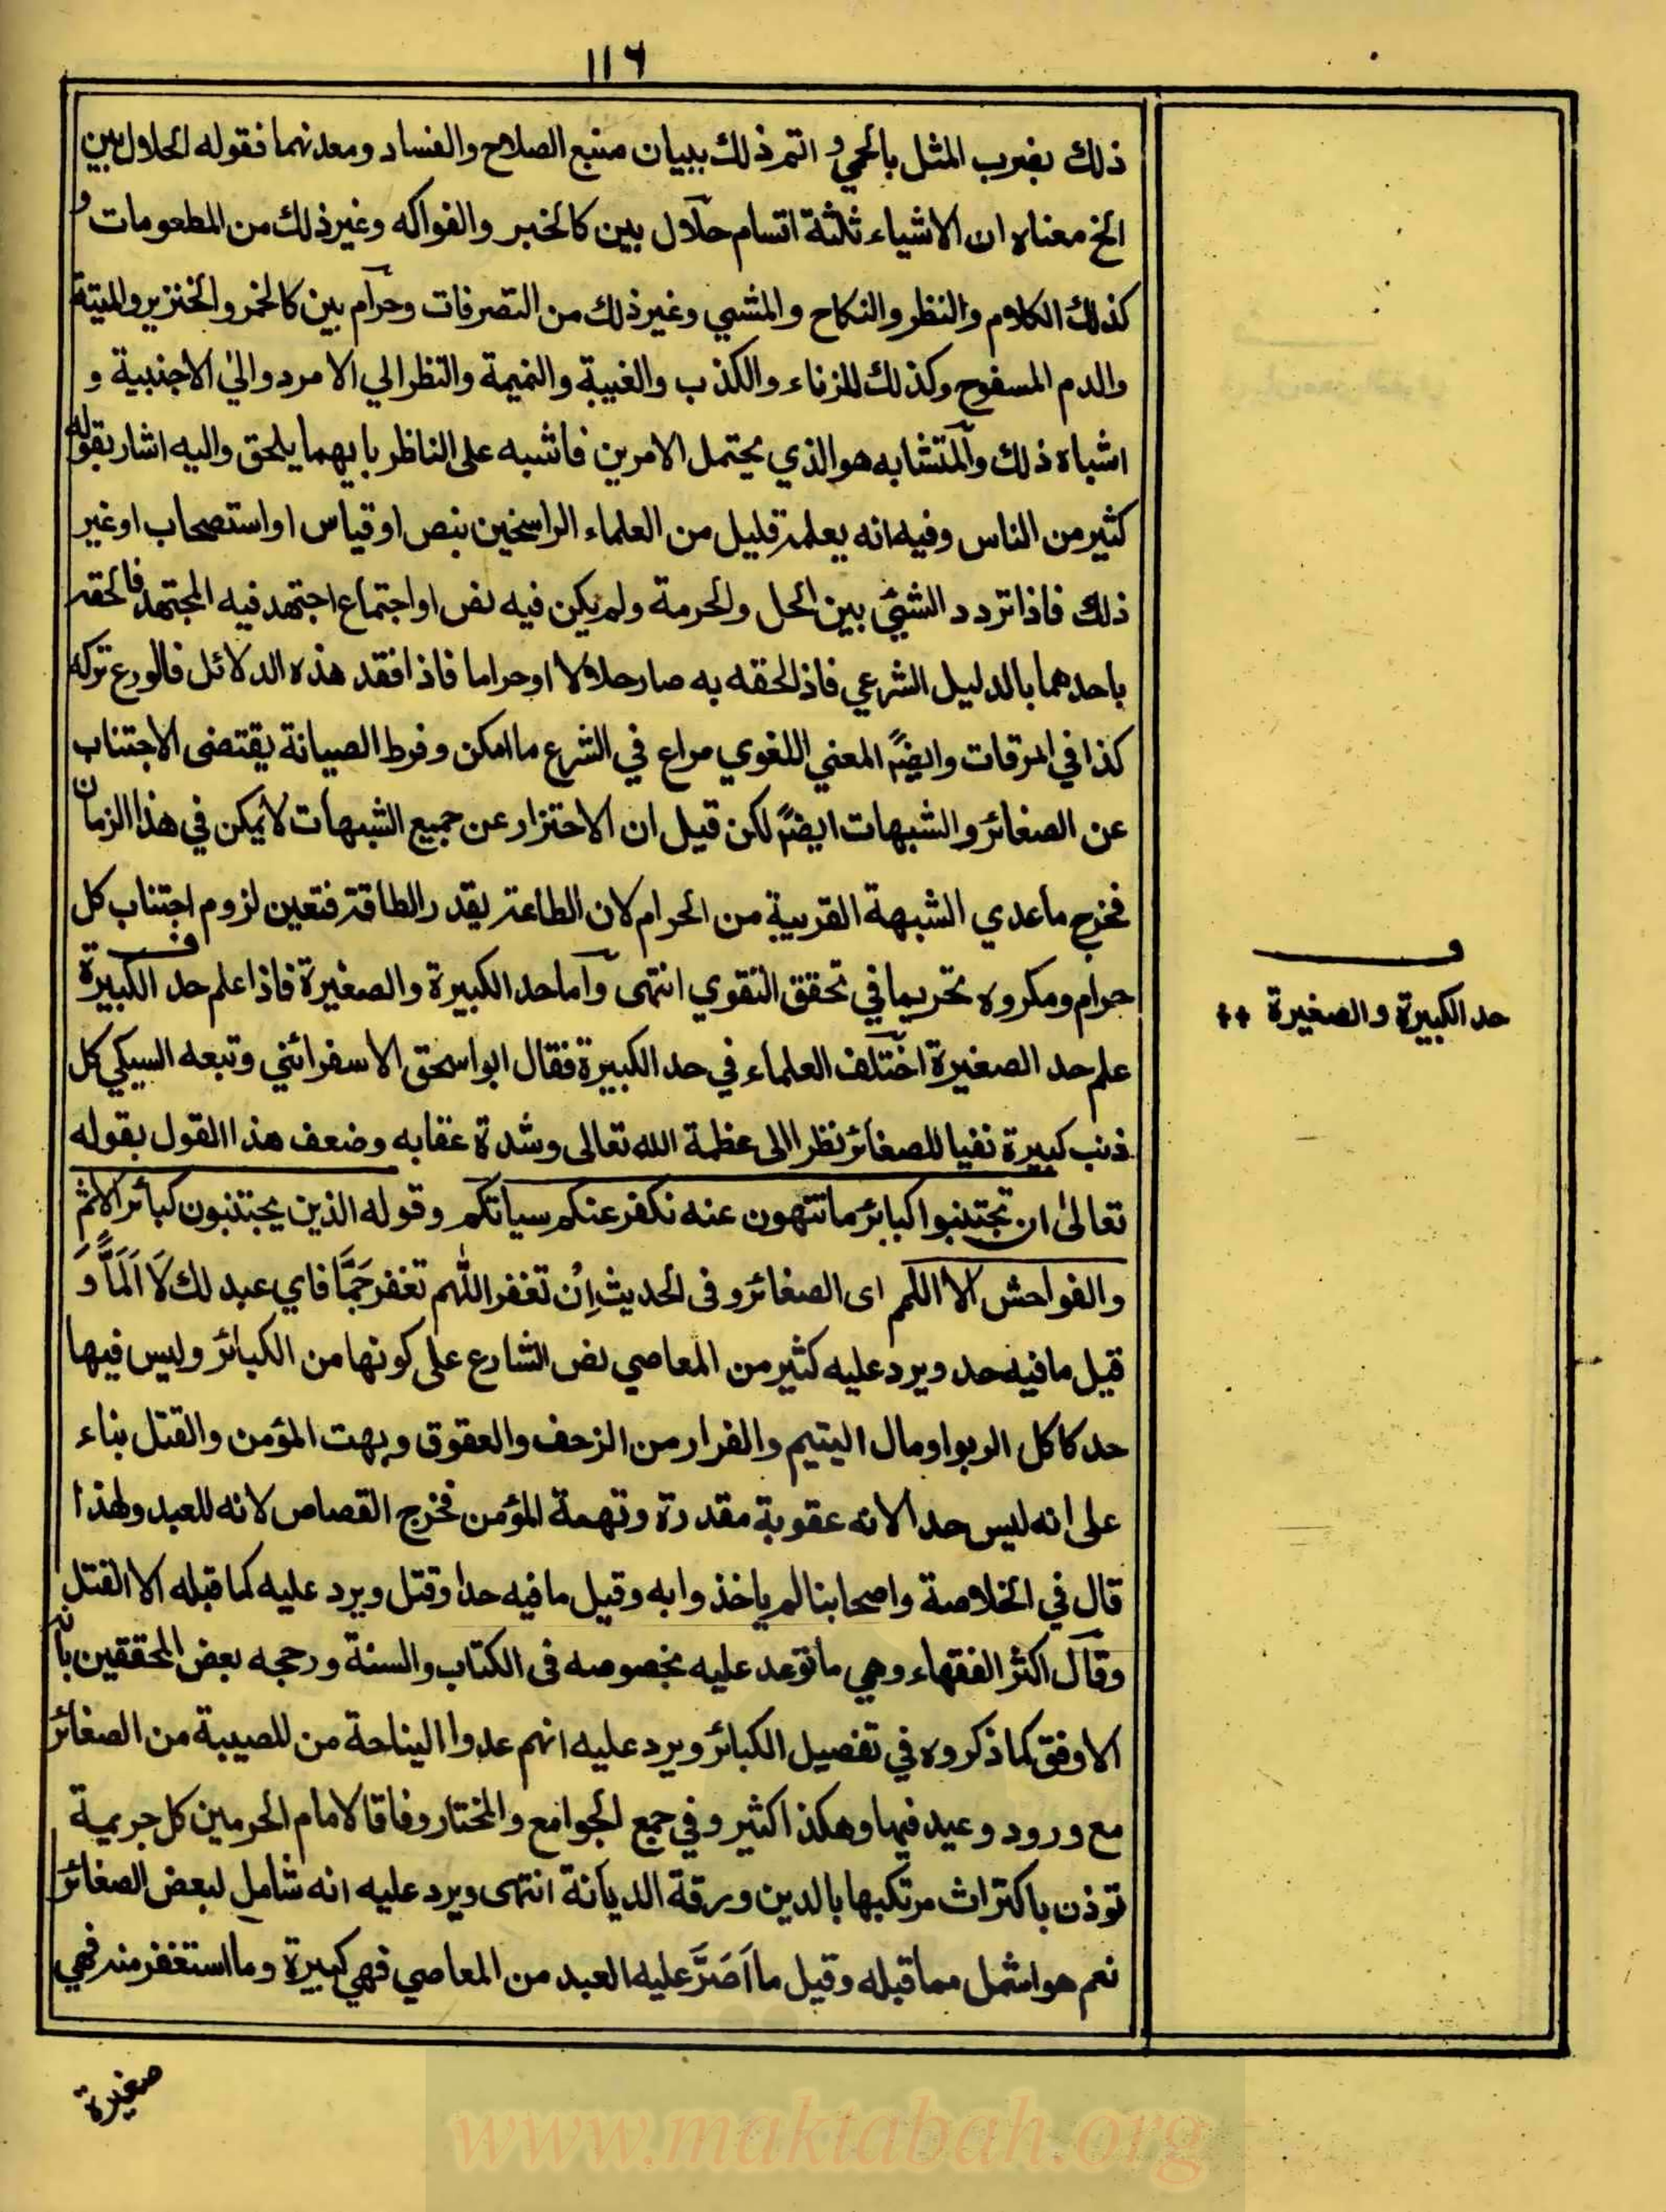 ١١٦
ذلك بضرب المثل بالحمي و اتم ذلك ببيان منبع الصلاح والفساد ومعدنهما فقوله الحلال بين
الخ معناه ان الاشياء ثلثة اقسام حلال بين كالخبز والفواكه وغير ذلك من المطعومات و
كذلك الكلام والنظر والنكاح والمشي وغير ذلك من التصرفات وحرام بين كالخمر والخنزير والميتة
والدم المسفوح وكذلك الزناء والكذب والغيبة والنميمة والنظر الي الامرد والي الاجنبية و
اشباه ذلك والمتشابه هو الذي يحتمل الامرين فاشبه على الناظر بايهما يلحق واليه اشار بقوله
كثير من الناس وفيه انه يعلمه قليل من العلماء الراسخين بنص او قياس او استصحاب او غير
ذلك فاذا تردد الشيئ بين الحل والحرمة ولم يكن فيه نص او اجتماع اجتهد فيه المجتهد فالحقه
باحدهما بالدليل الشرعي فاذا لحقه به صار حلالا او حراما فاذا فقد هذه الدلائل فالورع تركه
كذا في المرقات وايضًا المعني اللغوي مراع في الشرع ما امكن وفرط الصيانة يقتضى الاجتناب
عن الصغائر والشبهات ايضًا لكن قيل ان الاحتراز عن جميع الشبهات لا يمكن في هذا الزمان
فخرج ما عدي الشبهة القريبة من الحرام لان الطاعة بقدر الطاقة فتعين لزوم اجتناب كل
حرام ومكروه تحريما في تحقق التقوي انتهى واما حد الكبيرة والصغيرة فاذا علم حد الكبيرة
ف
حد الكبيرة والصغيرة
علم حد الصغيرة اختلف العلماء في حد الكبيرة فقال ابو اسحق الاسفرائني وتبعه السبكي كل
ذنب كبيرة نفيا للصغائر نظرا الى عظمة الله تعالى وشدة عقابه وضعف هذا القول بقوله
تعالىٰ ان تجتنبوا كبائر ما تنهون عنه نكفر عنكم سياتكم وقوله الذين يجتنبون كبائر الاثم
والفواحش الا اللمم اى الصغائر وفى الحديث اِن تغفر اللهم تغفر جَمًّا فاي عبد لك لَا اَلَمَّا وَ
قيل ما فيه حد ويرد عليه كثير من المعاصي نص الشارع على كونها من الكبائر وليس فيها
حد كاكل الربوا ومال اليتيم والفرار من الزحف والعقوق وبهت المؤمن والقتل بناء
على انه ليس حدا لانه عقوبة مقدرة وتهمة المؤمن فخرج القصاص لانه للعبد ولهذا
قال في الخلاصة واصحابنا لم ياخذوا به وقيل ما فيه حد او قتل ويرد عليه كما قبله الا القتل
وقال اكثر الفقهاء وهي ما توعد عليه بخصوصه فى الكتاب والسنة ورجحه بعض المحققين بانه
الاوفق كما ذكروه في تفصيل الكبائر ويرد عليه انهم عدوا الناحة من المصيبة من الصغائر
مع ورود وعيد فيها وهكذا كثير وفي جمع الجوامع والمختار وفاقا لامام الحرمين كل جريمة
توذن باكتراث مرتكبها بالدين ورقة الديانة انتهى ويرد عليه انه شامل لبعض الصغائر
نعم هو اشمل مما قبله وقيل ما اَصَرَّ عليه العبد من المعاصي فهي كبيرة وما استغفر منه فهي
صغيرة
www.maktabah.org